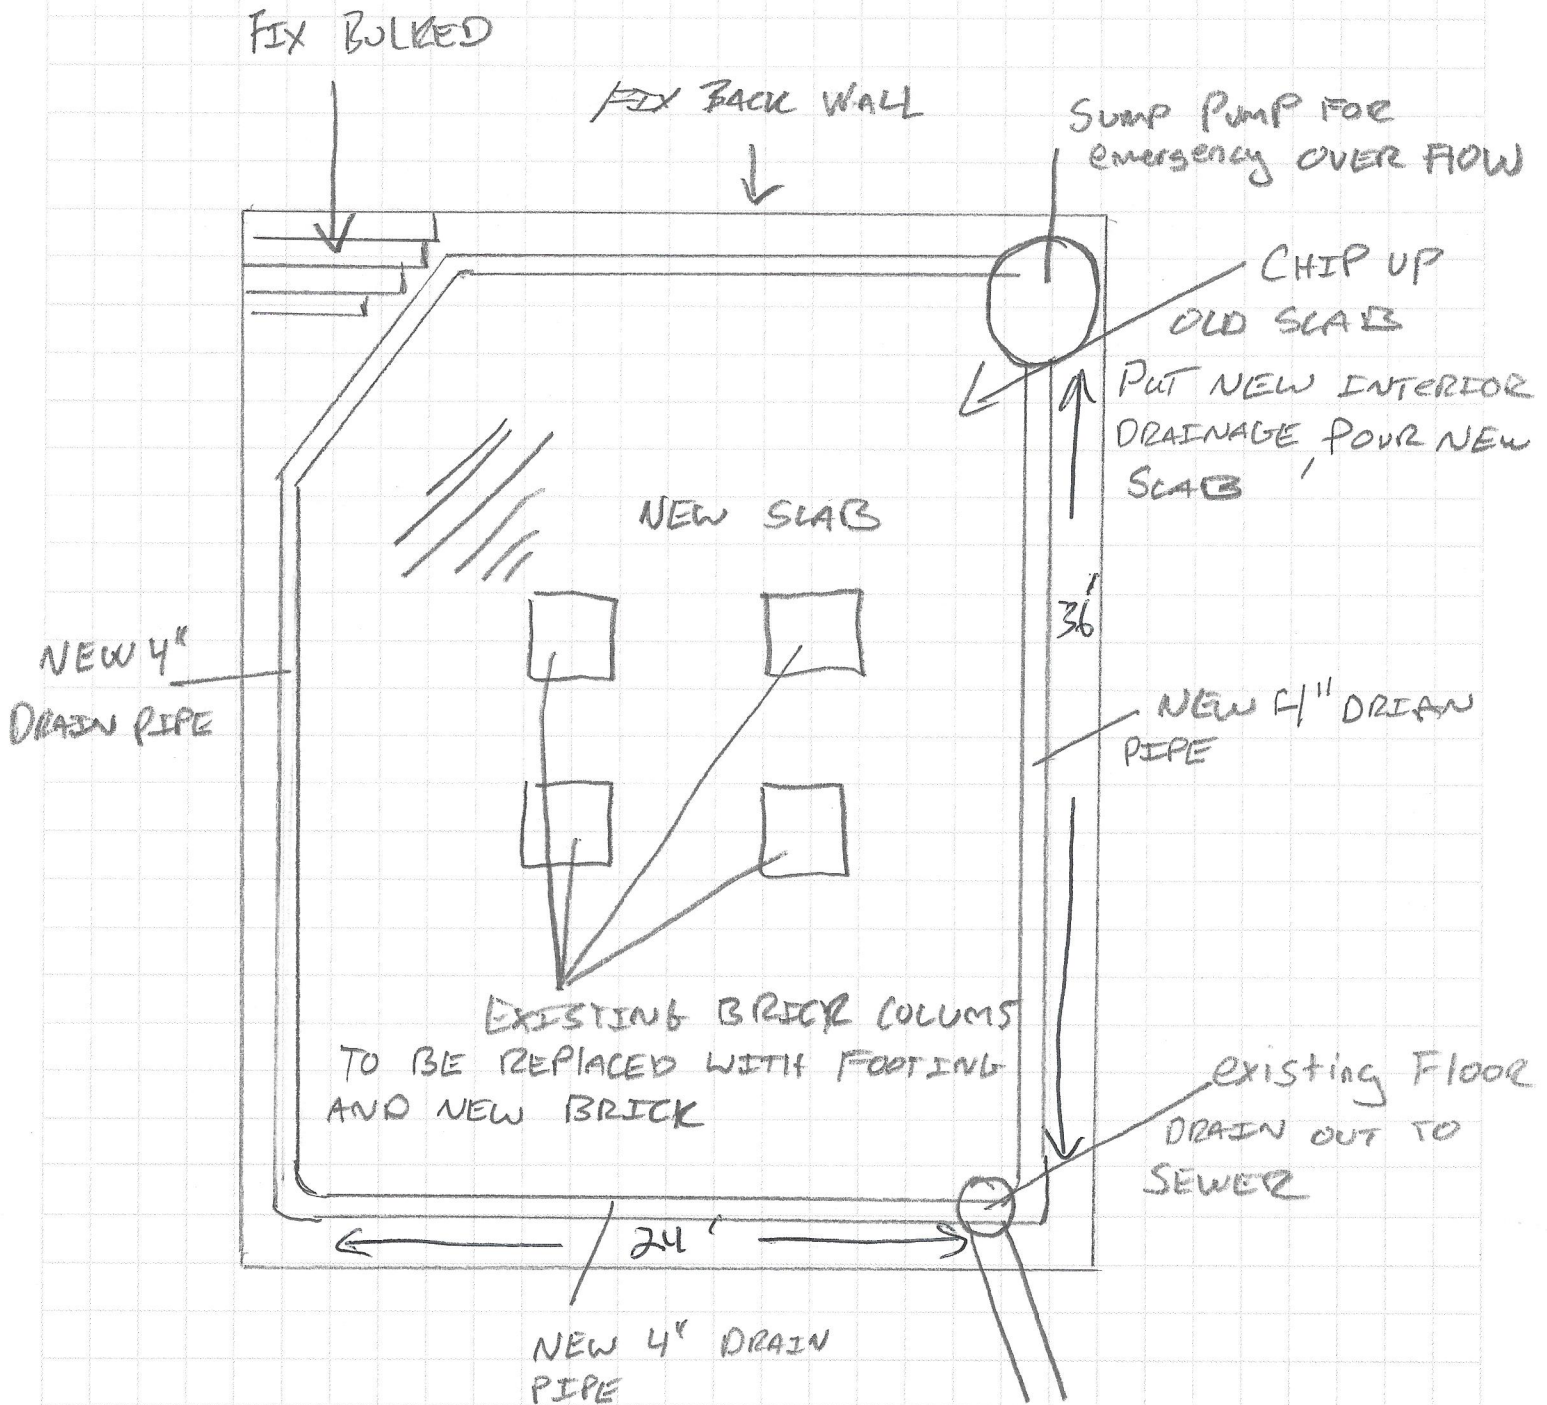 FIX BULKED
FIX BACK WALL
SUMP PUMP FOR
emergency OVER FLOW
CHIP UP
OLD SLAB
PUT NEW INTERIOR
DRAINAGE, POUR NEW
SLAB
NEW SLAB
36'
NEW 4"
DRAIN PIPE
NEW 4" DRIAN
PIPE
EXISTING BRICK COLUMS
TO BE REPLACED WITH FOOTING
AND NEW BRICK
existing Floor
DRAIN OUT TO
SEWER
24'
NEW 4" DRAIN
PIPE